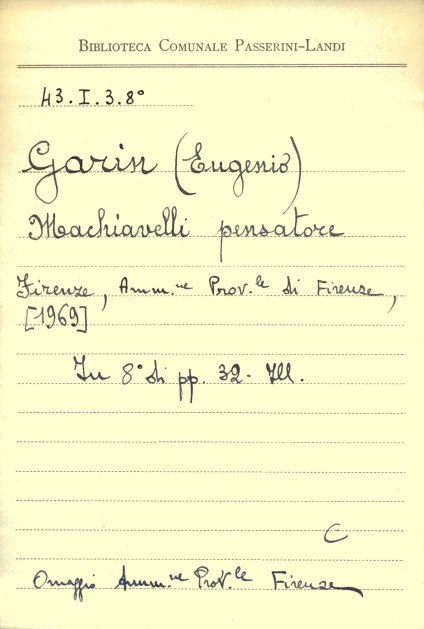 BIBLIOTECA COMUNALE PASSERINI-LANDI
43.I.3.8°
Garin (Eugenio)
Machiavelli pensatore
Firenze, Amm.ne Prov.le di Firenze,
[1969]
In 8° di pp. 32. Ill.
C
Omaggio Amm.ne Prov.le Firenze